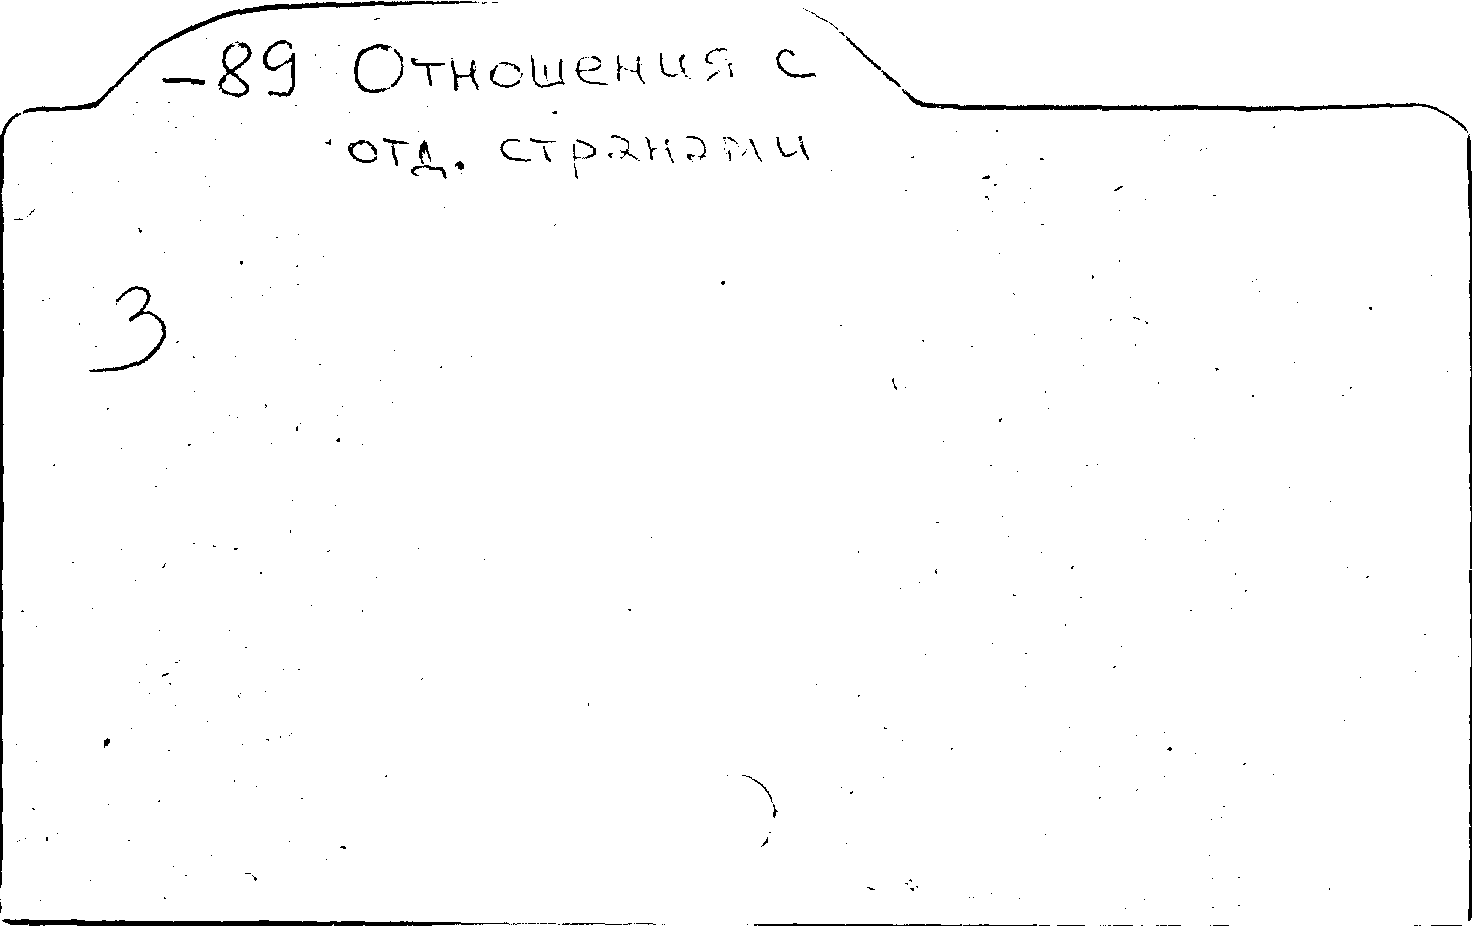 -89 Отношения с
отд. странами
3